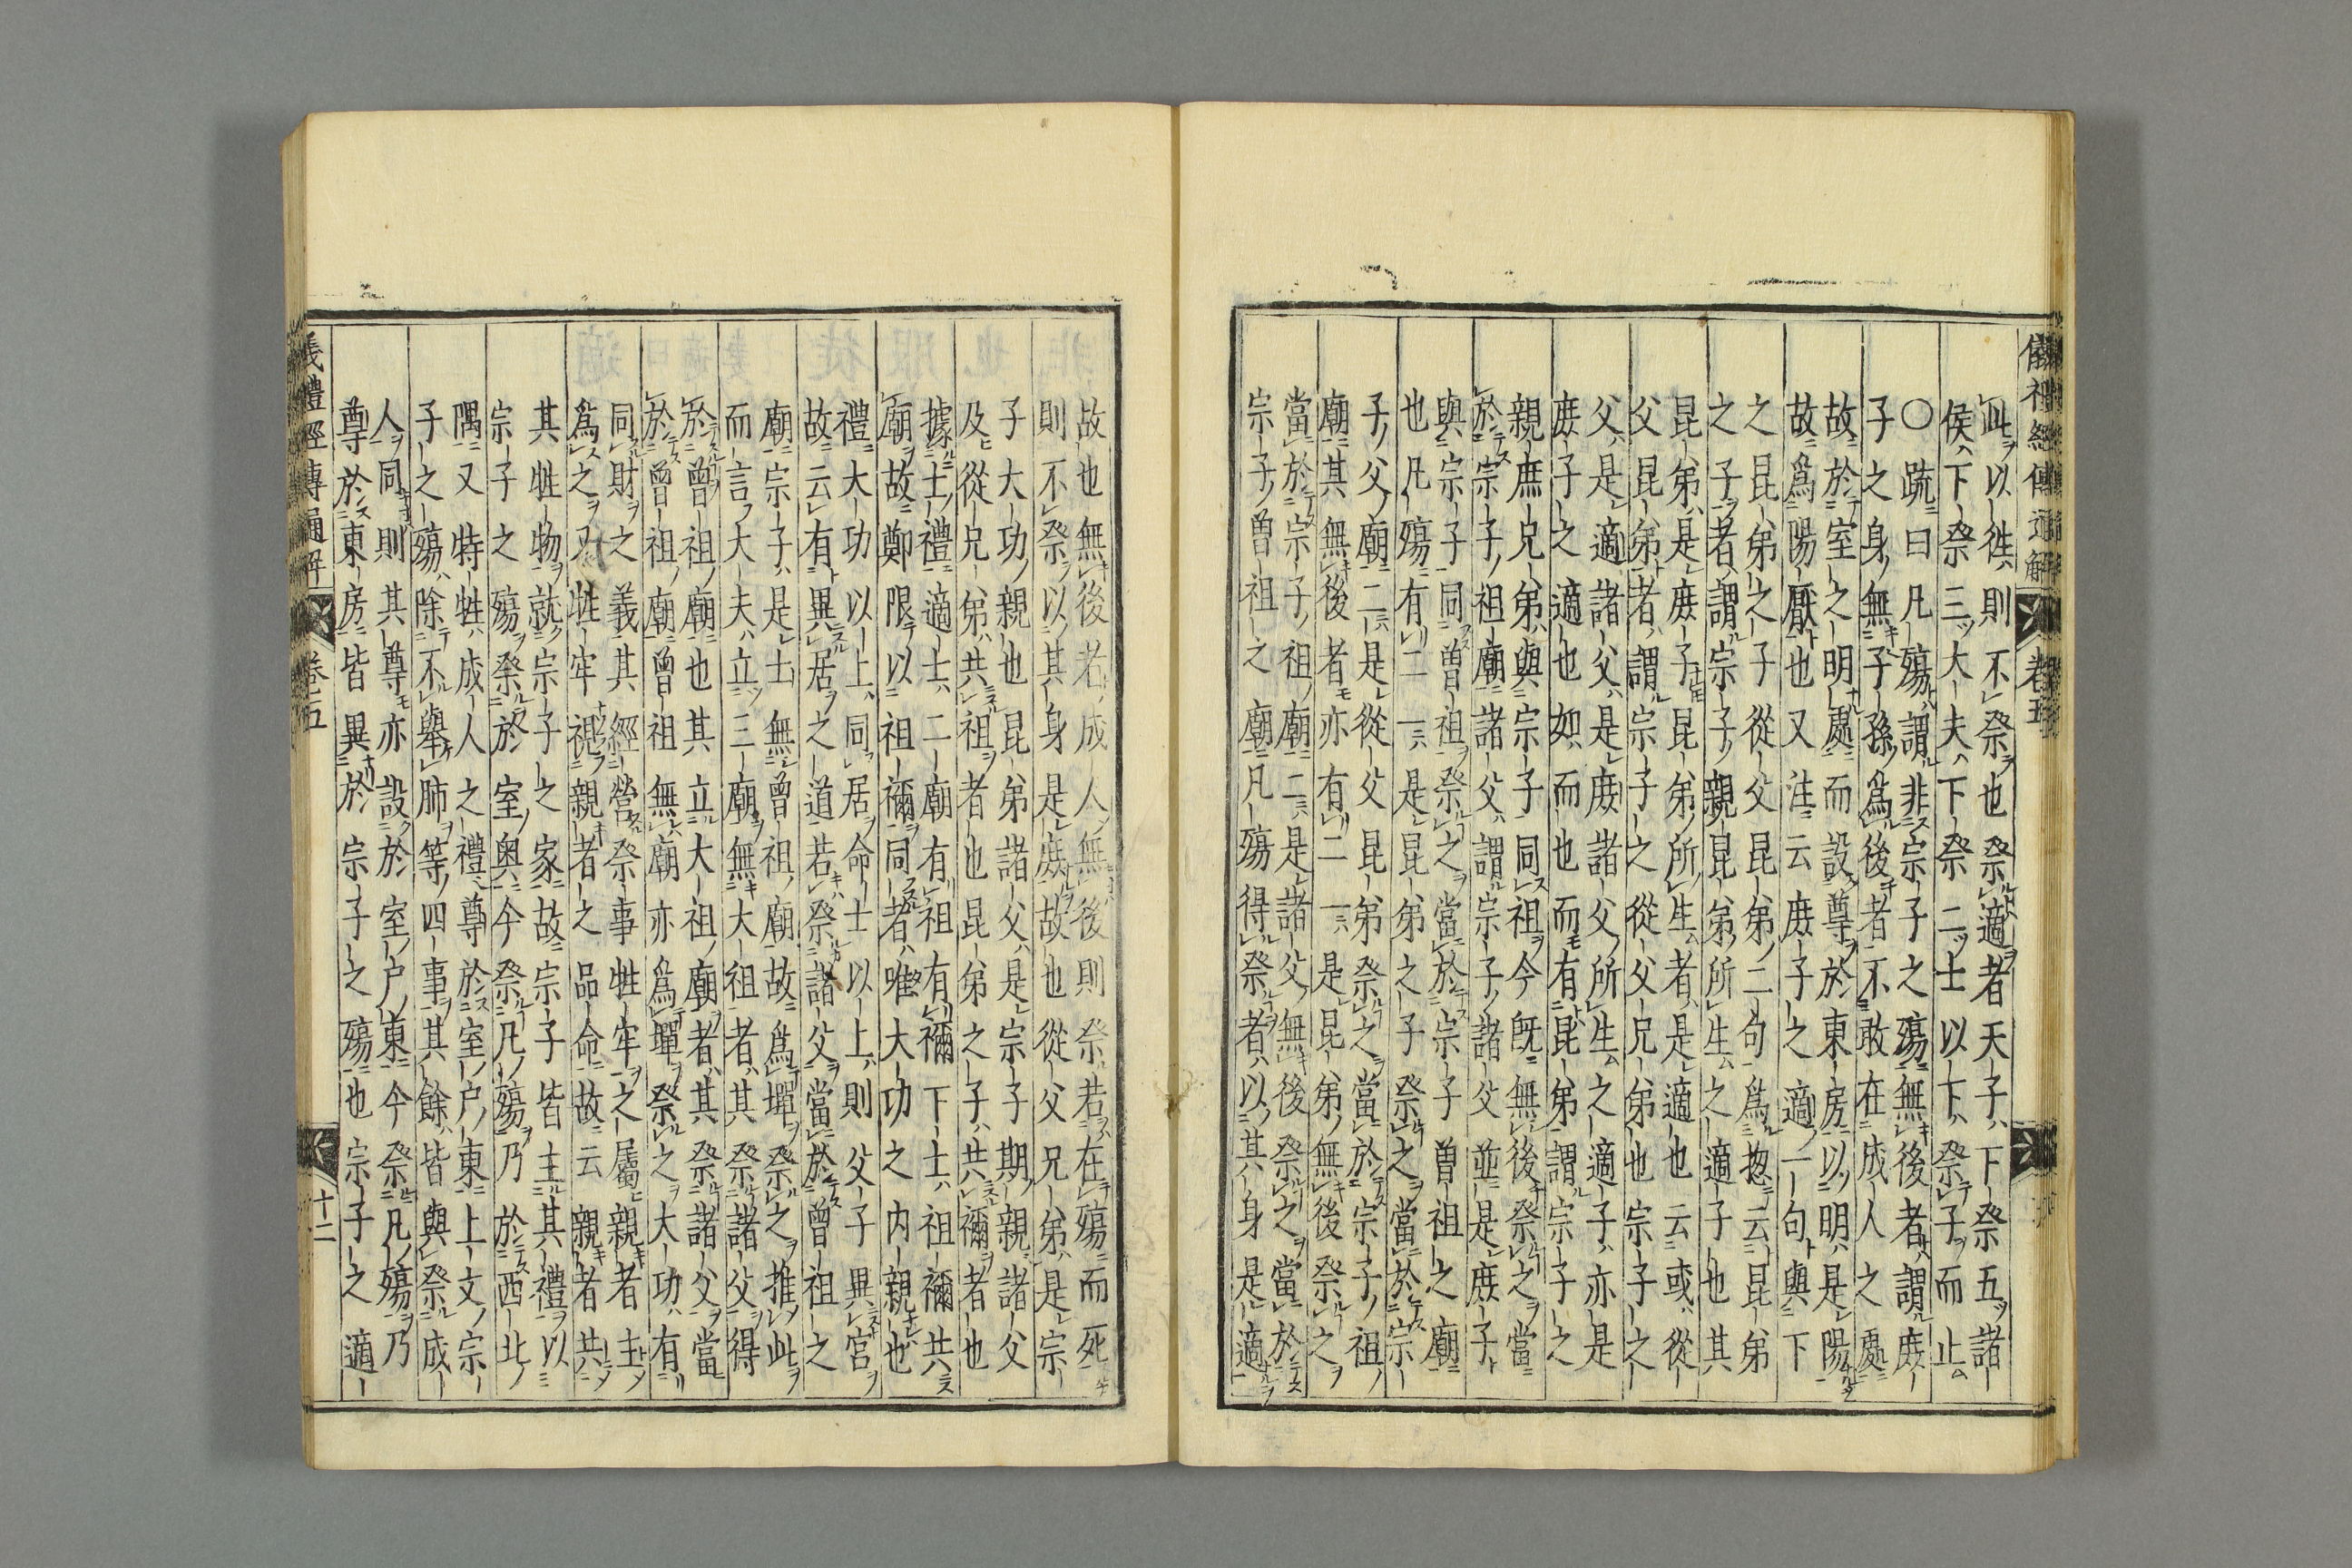 儀禮經傳通解 卷五
此以徃則不祭也祭適者天子下祭五諸
侯下祭三大夫下祭二士以下祭子而止
〇疏曰凡殤謂非宗子之殤無後者謂庻
子之身無子孫爲後者不敢在成人之處
故於室之明處而設尊於東房以明是陽
故爲陽厭也又注云庻子之適一句與下
之昆弟之子從父昆弟二句爲揔云昆弟
之子者謂宗子親昆弟所生之適子也其
昆弟是庻子昆弟所生者是適也云或從
父昆弟者謂宗子之從父兄弟也宗子之
父是適諸父是庻諸父所生之適子亦是
庻子之適也如而也而有昆弟謂宗子之
親庶兄弟與宗子同祖今旣無後祭之當
於宗子祖廟諸父謂宗子諸父並是庻子
與宗子同曽祖祭之當於宗子曽祖之廟
也凡殤有二一是昆弟之子祭之當於宗
子父廟二是從父昆弟祭之當於宗子祖
廟其無後者亦有二一是昆弟無後祭之
當於宗子祖廟二是諸父無後祭之當於
宗子曽祖之廟凡殤得祭者以其身是適
故也無後若成人無後則祭若在殤而死
則不祭以其身是庻故也從父兄弟是宗
子大功親也昆弟諸父是宗子期親諸父
及從兄弟共祖者也昆弟之子共禰者也
據士禮適士二廟有祖有禰下士祖禰共
廟故鄭限以祖禰同者唯大功之内親也
禮大功以上同居命士以上則父子異宮
故云有異居之道若祭諸父當於曽祖之
廟宗子是士無曽祖廟故爲墠祭之推此
而言大夫立三廟無大祖者其祭諸父得
於曽祖廟也其立大祖廟者其祭諸父當
於曽祖廟曽祖無廟亦爲墠祭之大功有
同財之義其經營祭事牲牢之屬親者主
爲之又牲牢視親者之品命故云親者共
其牲物就宗子之家故宗子皆主其禮以
宗子之殤祭於室奥今祭凡殤乃於西北
隅又特牲成人之禮尊於室户東上文宗
子之殤除不舉肺等四事其餘皆與祭成
人同則其尊亦設於室户東今祭凡殤乃
尊於東房皆異於宗子之殤也宗子之適
儀禮經傳通解 卷五 十二